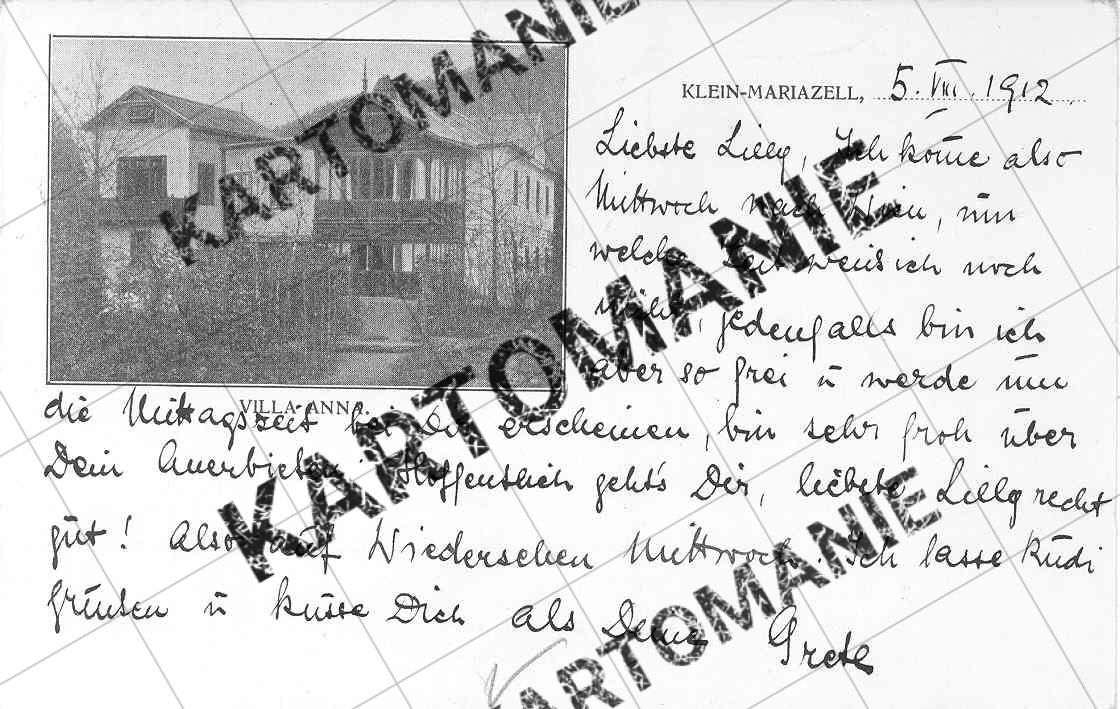 KLEIN-MARIAZELL, 5. VIII. 1912
Liebste Lilly, Ich kome also
Mittwoch nach Wien, um
welche Zeit weiss ich noch
nicht, jedenfalls bin ich
aber so frei u werde um
VILLA ANNA.
die Mittagszeit bei Dir erscheinen, bin sehr froh über
Dein Anerbieten. Hoffentlich geht's Dir, liebste Lilly recht
gut! Also auf Wiedersehen Mittwoch. Ich lasse Rudi
grüssen u küsse Dich als Deine Grete
KARTOMANIE
KARTOMANIE
KARTOMANIE